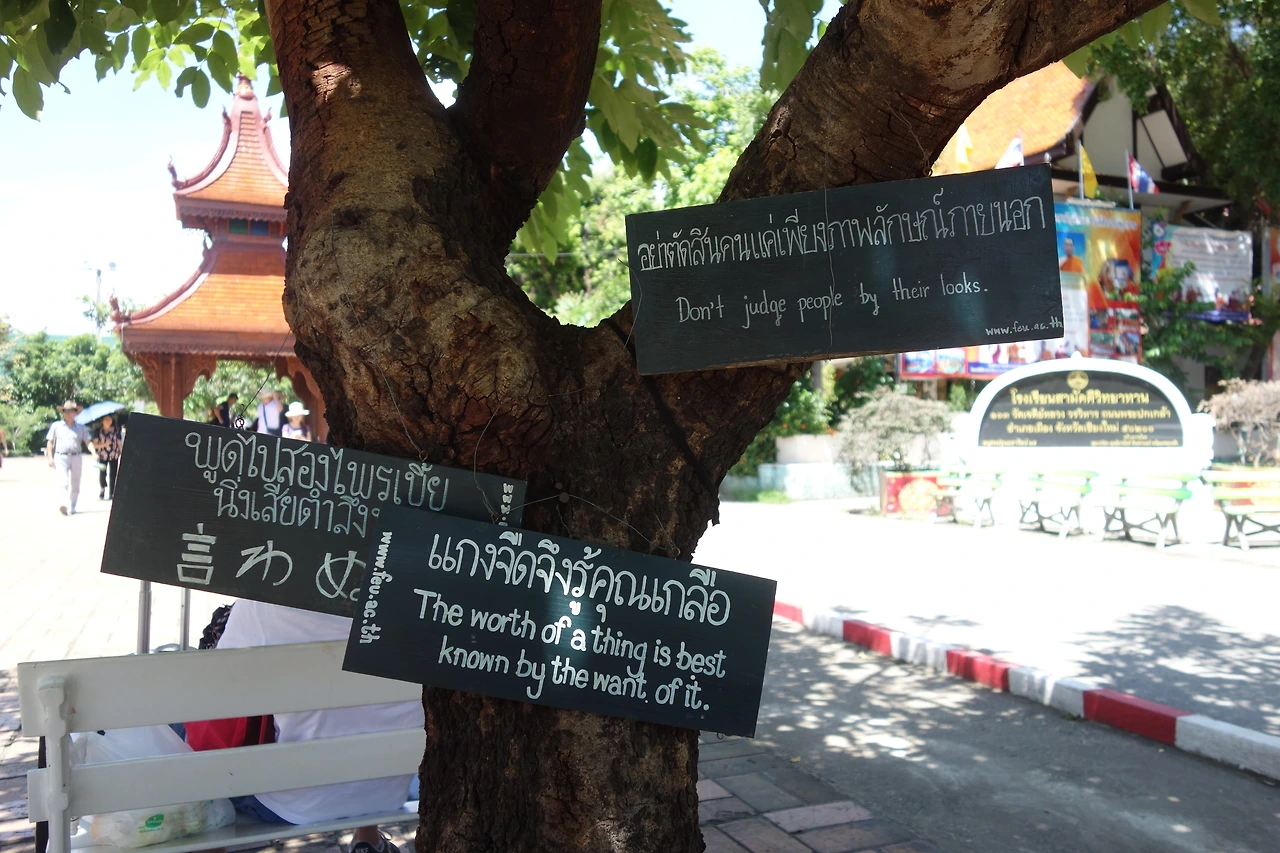 อย่าตัดสินคนแค่เพียงภาพลักษณ์ภายนอก
Don't judge people by their looks.
www.feu.ac.th
พูดไปสองไพรเบี้ย
นิ่งเสียตำลึง
言わぬ
www.
แกงจืดจึงรู้คุณเกลือ
The worth of a thing is best
known by the want of it.
www.feu.ac.th
โรงเรียนสามัคคีวิทยาทาน